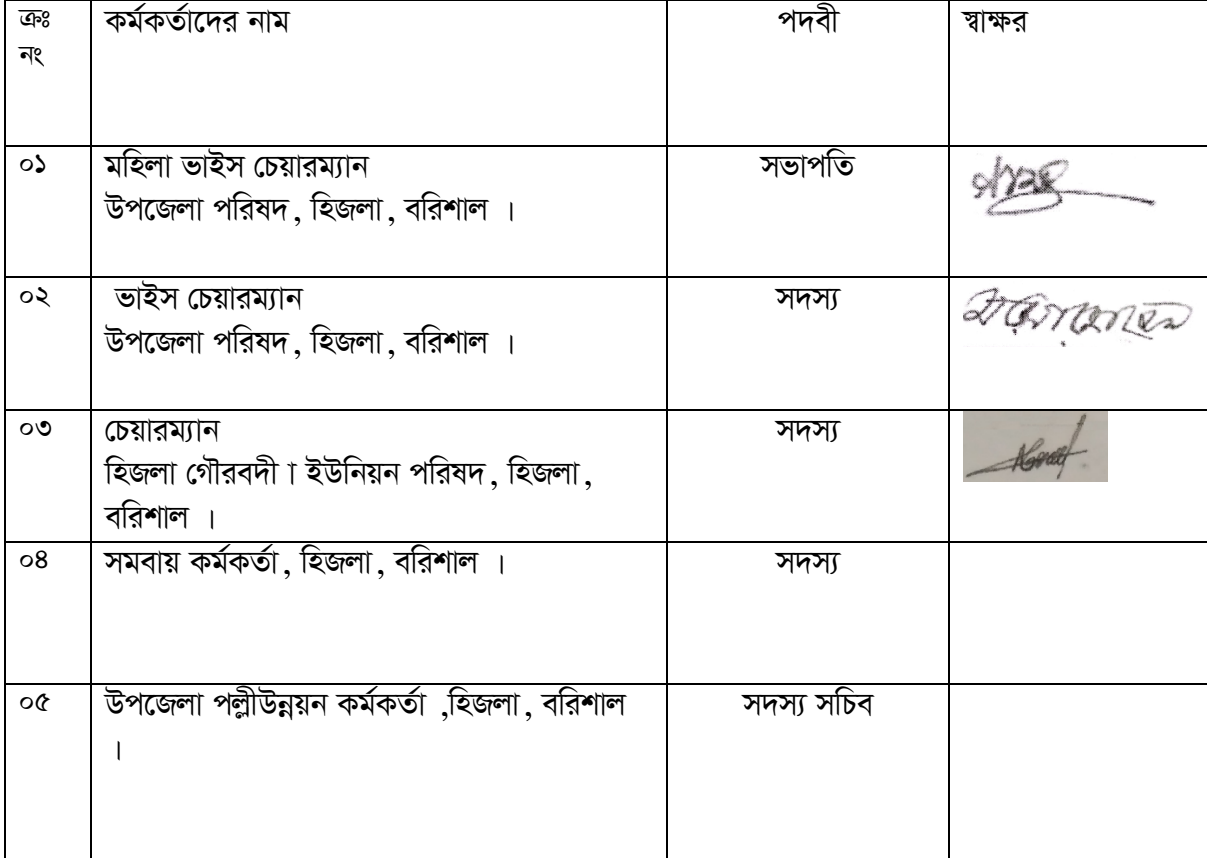 ক্রঃ নং কর্মকর্তাদের নাম পদবী স্বাক্ষর
০১ মহিলা ভাইস চেয়ারম্যান সভাপতি
উপজেলা পরিষদ, হিজলা, বরিশাল ।
০২ ভাইস চেয়ারম্যান সদস্য
উপজেলা পরিষদ, হিজলা, বরিশাল ।
০৩ চেয়ারম্যান সদস্য
হিজলা গৌরবদী া ইউনিয়ন পরিষদ, হিজলা,
বরিশাল ।
০৪ সমবায় কর্মকর্তা, হিজলা, বরিশাল । সদস্য
০৫ উপজেলা পল্লীউন্নয়ন কর্মকর্তা ,হিজলা, বরিশাল সদস্য সচিব
।